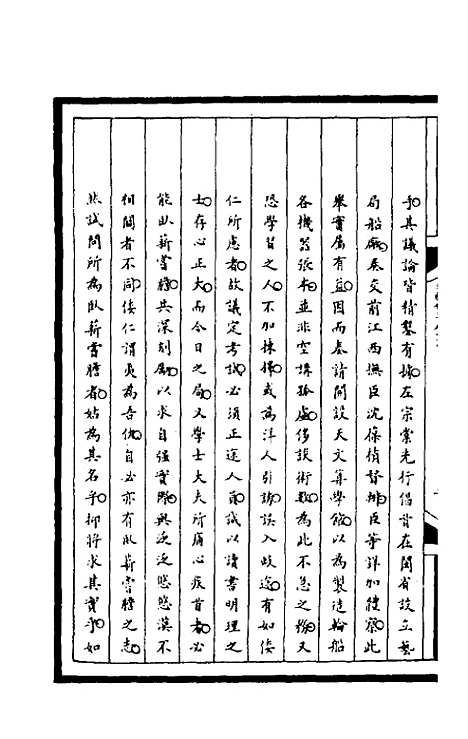 乎其議論皆精鑿有據左宗棠先行倡首在閩省設立藝
局船廠奏交前江西撫臣沈葆楨督辦臣等詳加體察此
舉實屬有益因而奏請開設天文算學館以為製造輪船
各機器張本並非空講孤虛侈談術數為此不急之務又
恐學習之人不加揀擇或為洋人引誘誤入岐途有如倭
仁所慮者故議定考試必須正途人員誠以讀書明理之
士存心正大而今日之局又學士大夫所痛心疾首者必
能臥薪嘗膽共深刻厲以求自強實際與泛泛悠悠漠不
相關者不同倭仁謂夷為吾仇自必亦有臥薪嘗膽之志
然試問所為臥薪嘗膽者姑為其名乎抑將求其實乎如